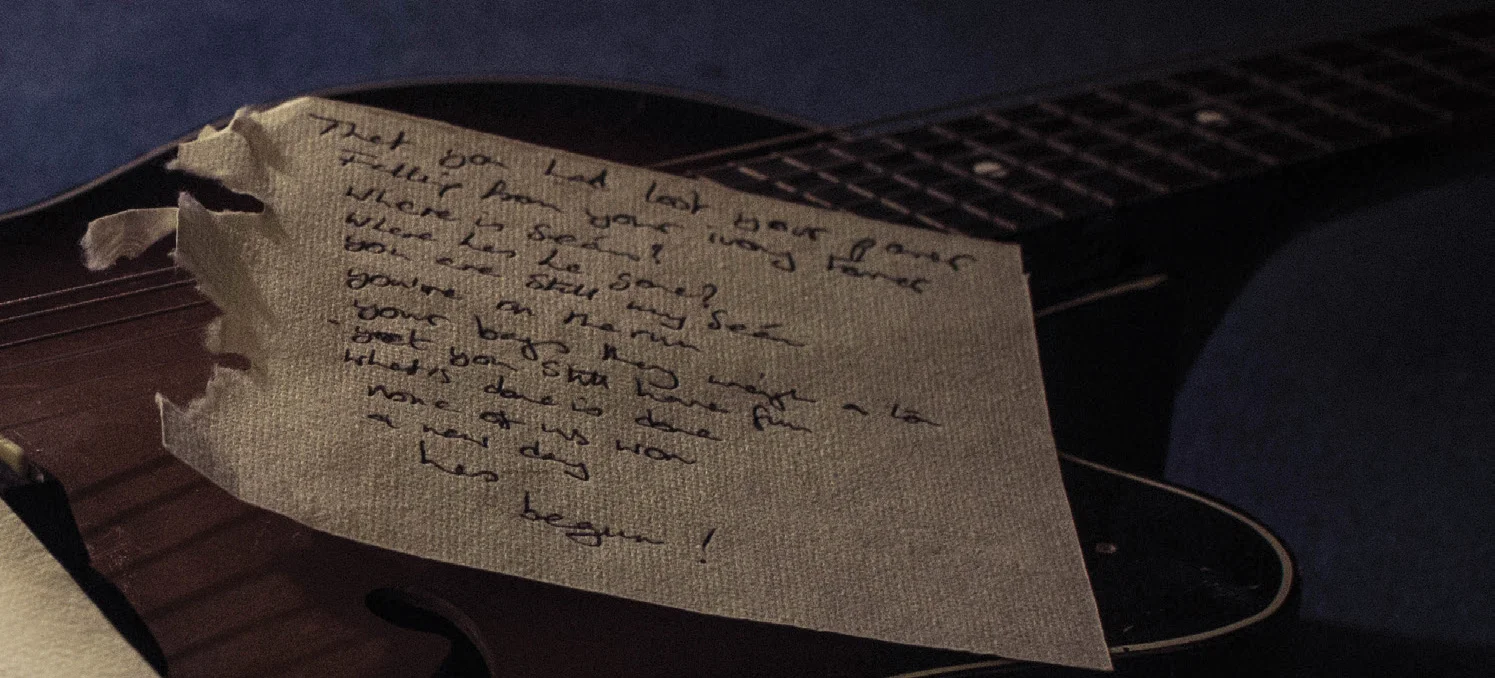 That you had lost your power
Fallin from your ivory tower
Where is Seán?
Where has he gone?
You are still my Seán
You're on the run
your bags they weigh a ton
yet you still have fun
what is done is done
none of us won
a new day
has
begun!